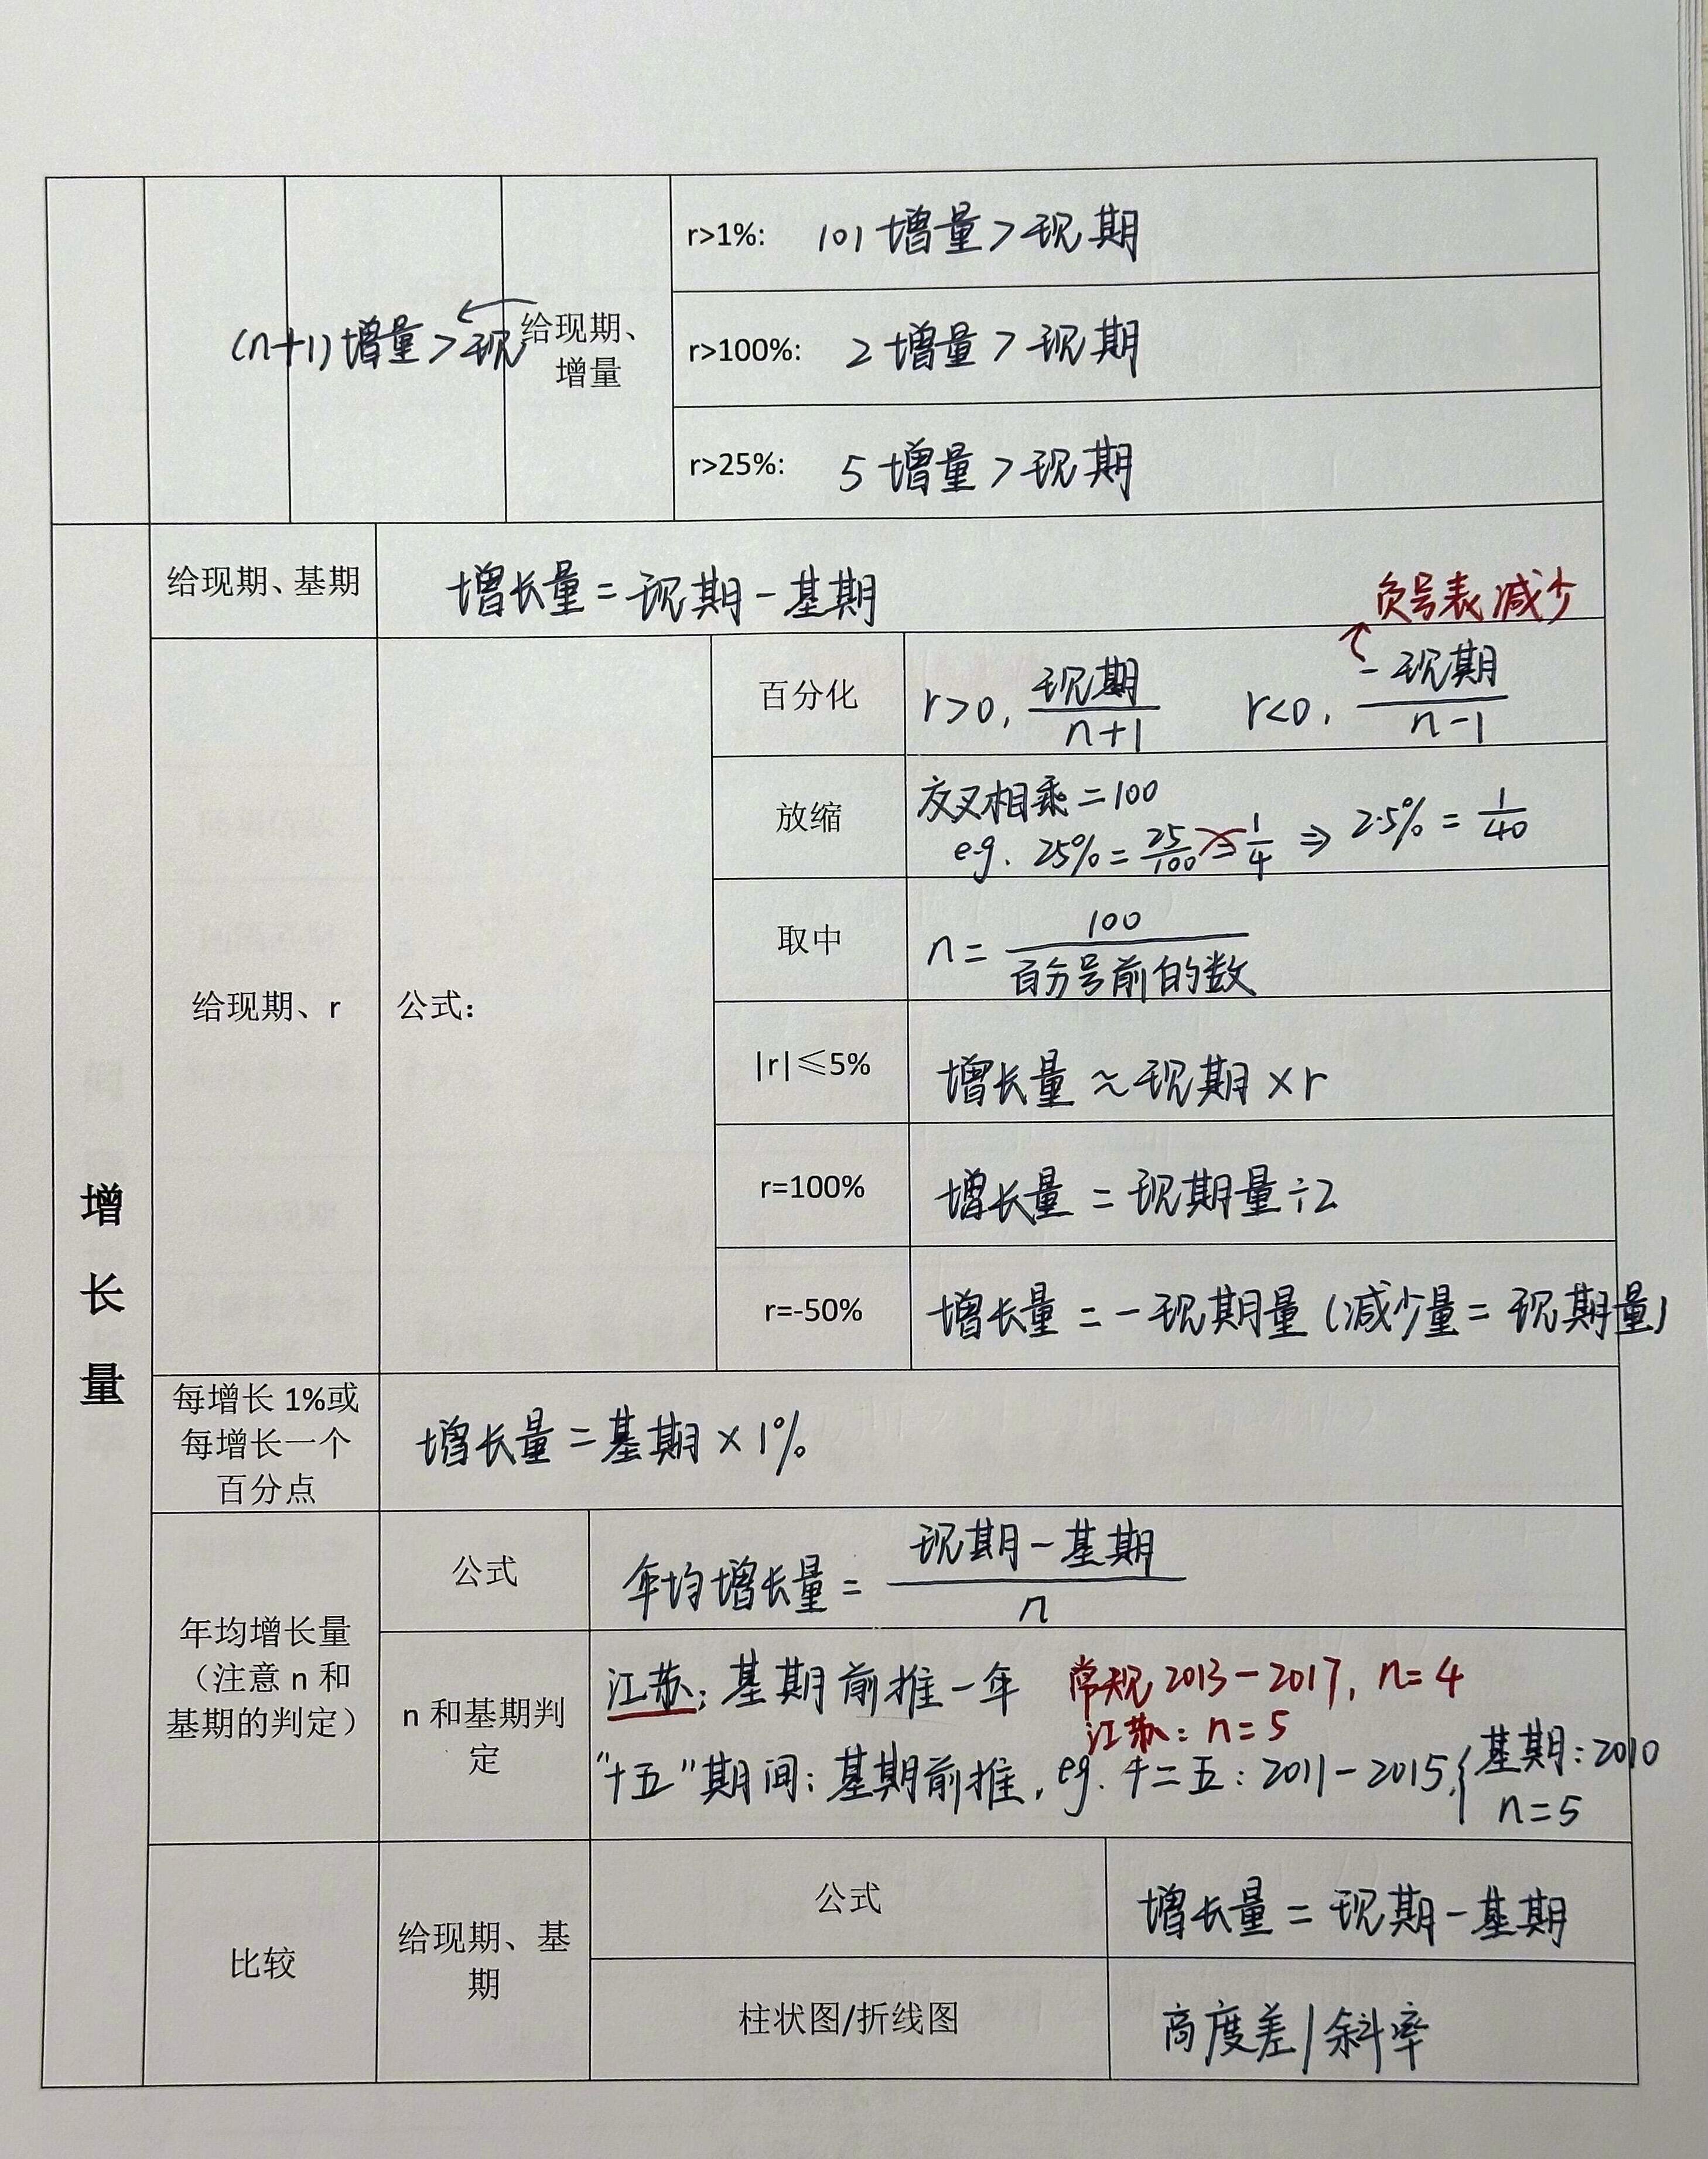 r>1%: 101增量>现期
(n+1)增量>现
给现期、
增量
r>100%: 2增量>现期
r>25%: 5增量>现期
增
长
量
给现期、基期
增长量=现期-基期
负号表减少
给现期、r
公式：
百分化
r>0, 现期/n+1 r<0, -现期/n-1
放缩
交叉相乘=100
e.g. 25%=25/100=1/4 ⇒ 2.5%=1/40
取中
n=100/百分号前的数
|r|≤5%
增长量≈现期×r
r=100%
增长量=现期量÷2
r=-50%
增长量=-现期量(减少量=现期量)
每增长 1%或
每增长一个
百分点
增长量=基期×1%
年均增长量
（注意 n 和
基期的判定）
公式
年均增长量=现期-基期/n
n 和基期判
定
江苏：基期前推一年 常规2013-2017, n=4
江苏：n=5
"十五"期间：基期前推, eg. 十二五：2011-2015,{基期：2010
n=5
比较
给现期、基
期
公式
增长量=现期-基期
柱状图/折线图
高度差/斜率